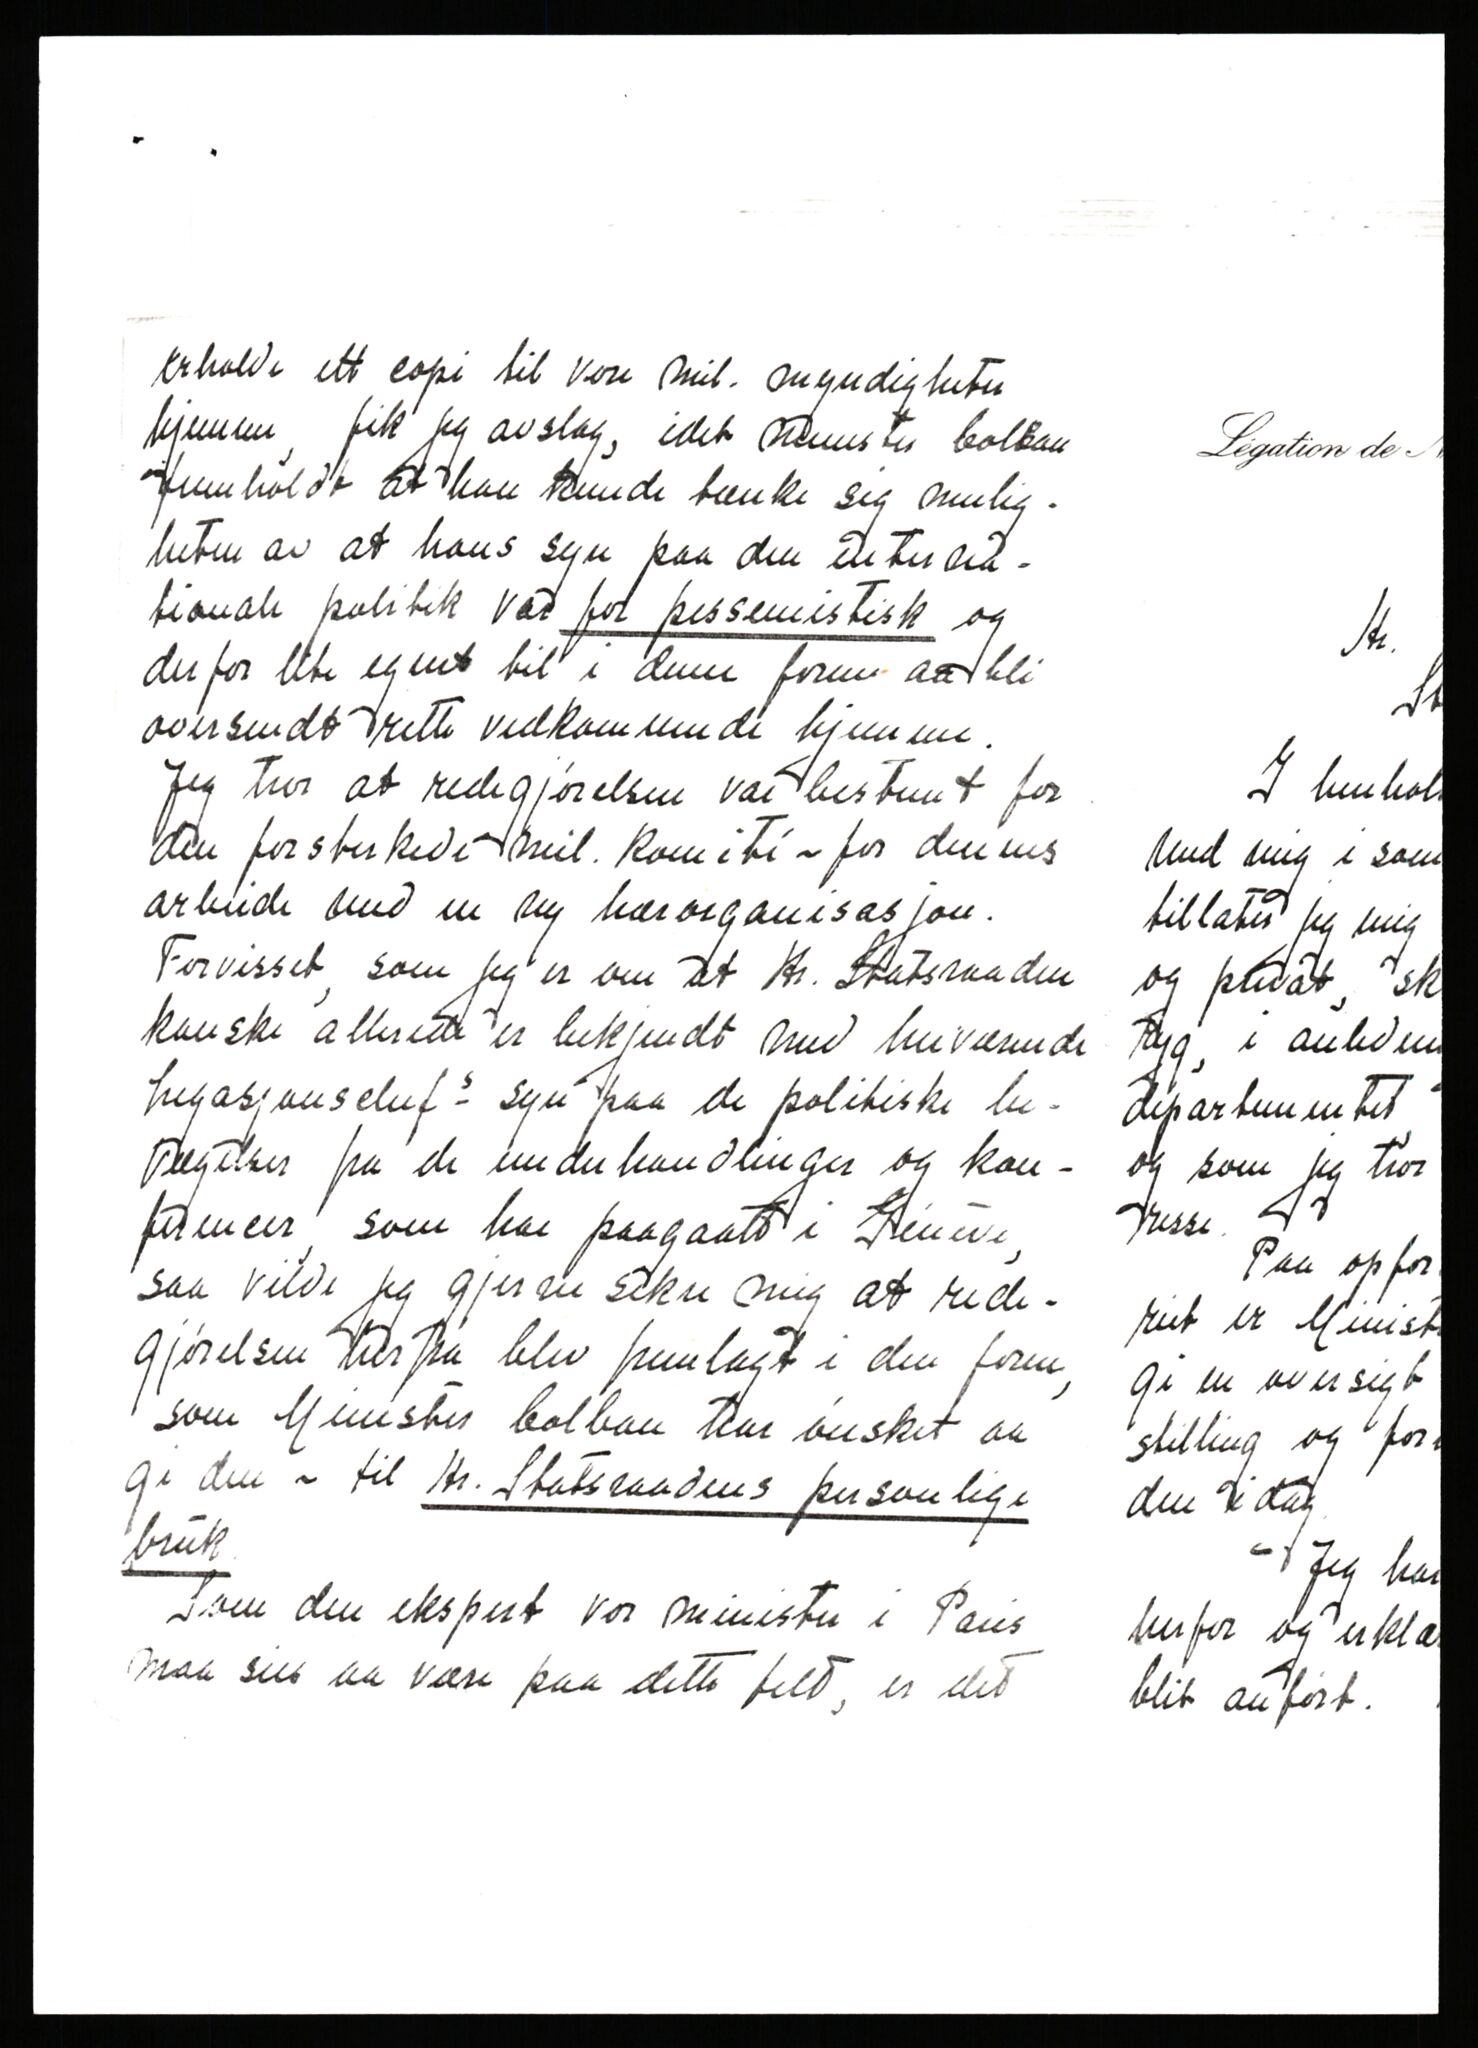 erholde ett copi til vore mil. myndigheter
hjemme, fik jeg avslag, idet minister Colban
fremholdt at han kunde tænke sig mulig-
heten av at hans syn paa den interna-
tionale politik var for pessemistisk og
derfor lite egnet til i denne form aa bli
oversendt rette vedkommende hjemme.
Jeg tror at redegjørelsen var bestemt for
den forsterkede mil. komité ~ for dennes
arbeide med en ny hærorganisasjon.
Forvisset, som jeg er om at Hr. Statsraaden
kanske allerede er bekjendt med herværende
legasjonschef's syn paa de politiske be-
vægelser fra de underhandlinger og kon-
ferencer, som har paagaatt i Genève,
saa vilde jeg gjerne sikre mig at rede-
gjørelsen herfra blev fremlagt i den form,
som Minister Colban har ønsket aa
gi den ~ til Hr. Statsraadens personlige
bruk.
Som den ekspert vor minister i Paris
maa sies aa være paa dette felt, er det
Légation de N
Hr.
St
I henhol
med mig i som
tillater jeg mig
og privat, sk
ryg, i anleden
departementet,
og som jeg tror
resse.
Paa opfor
rit er Minist
gi en oversigt
stilling og for
den i dag.
- Jeg har
herfor og erklæ
blit anført.